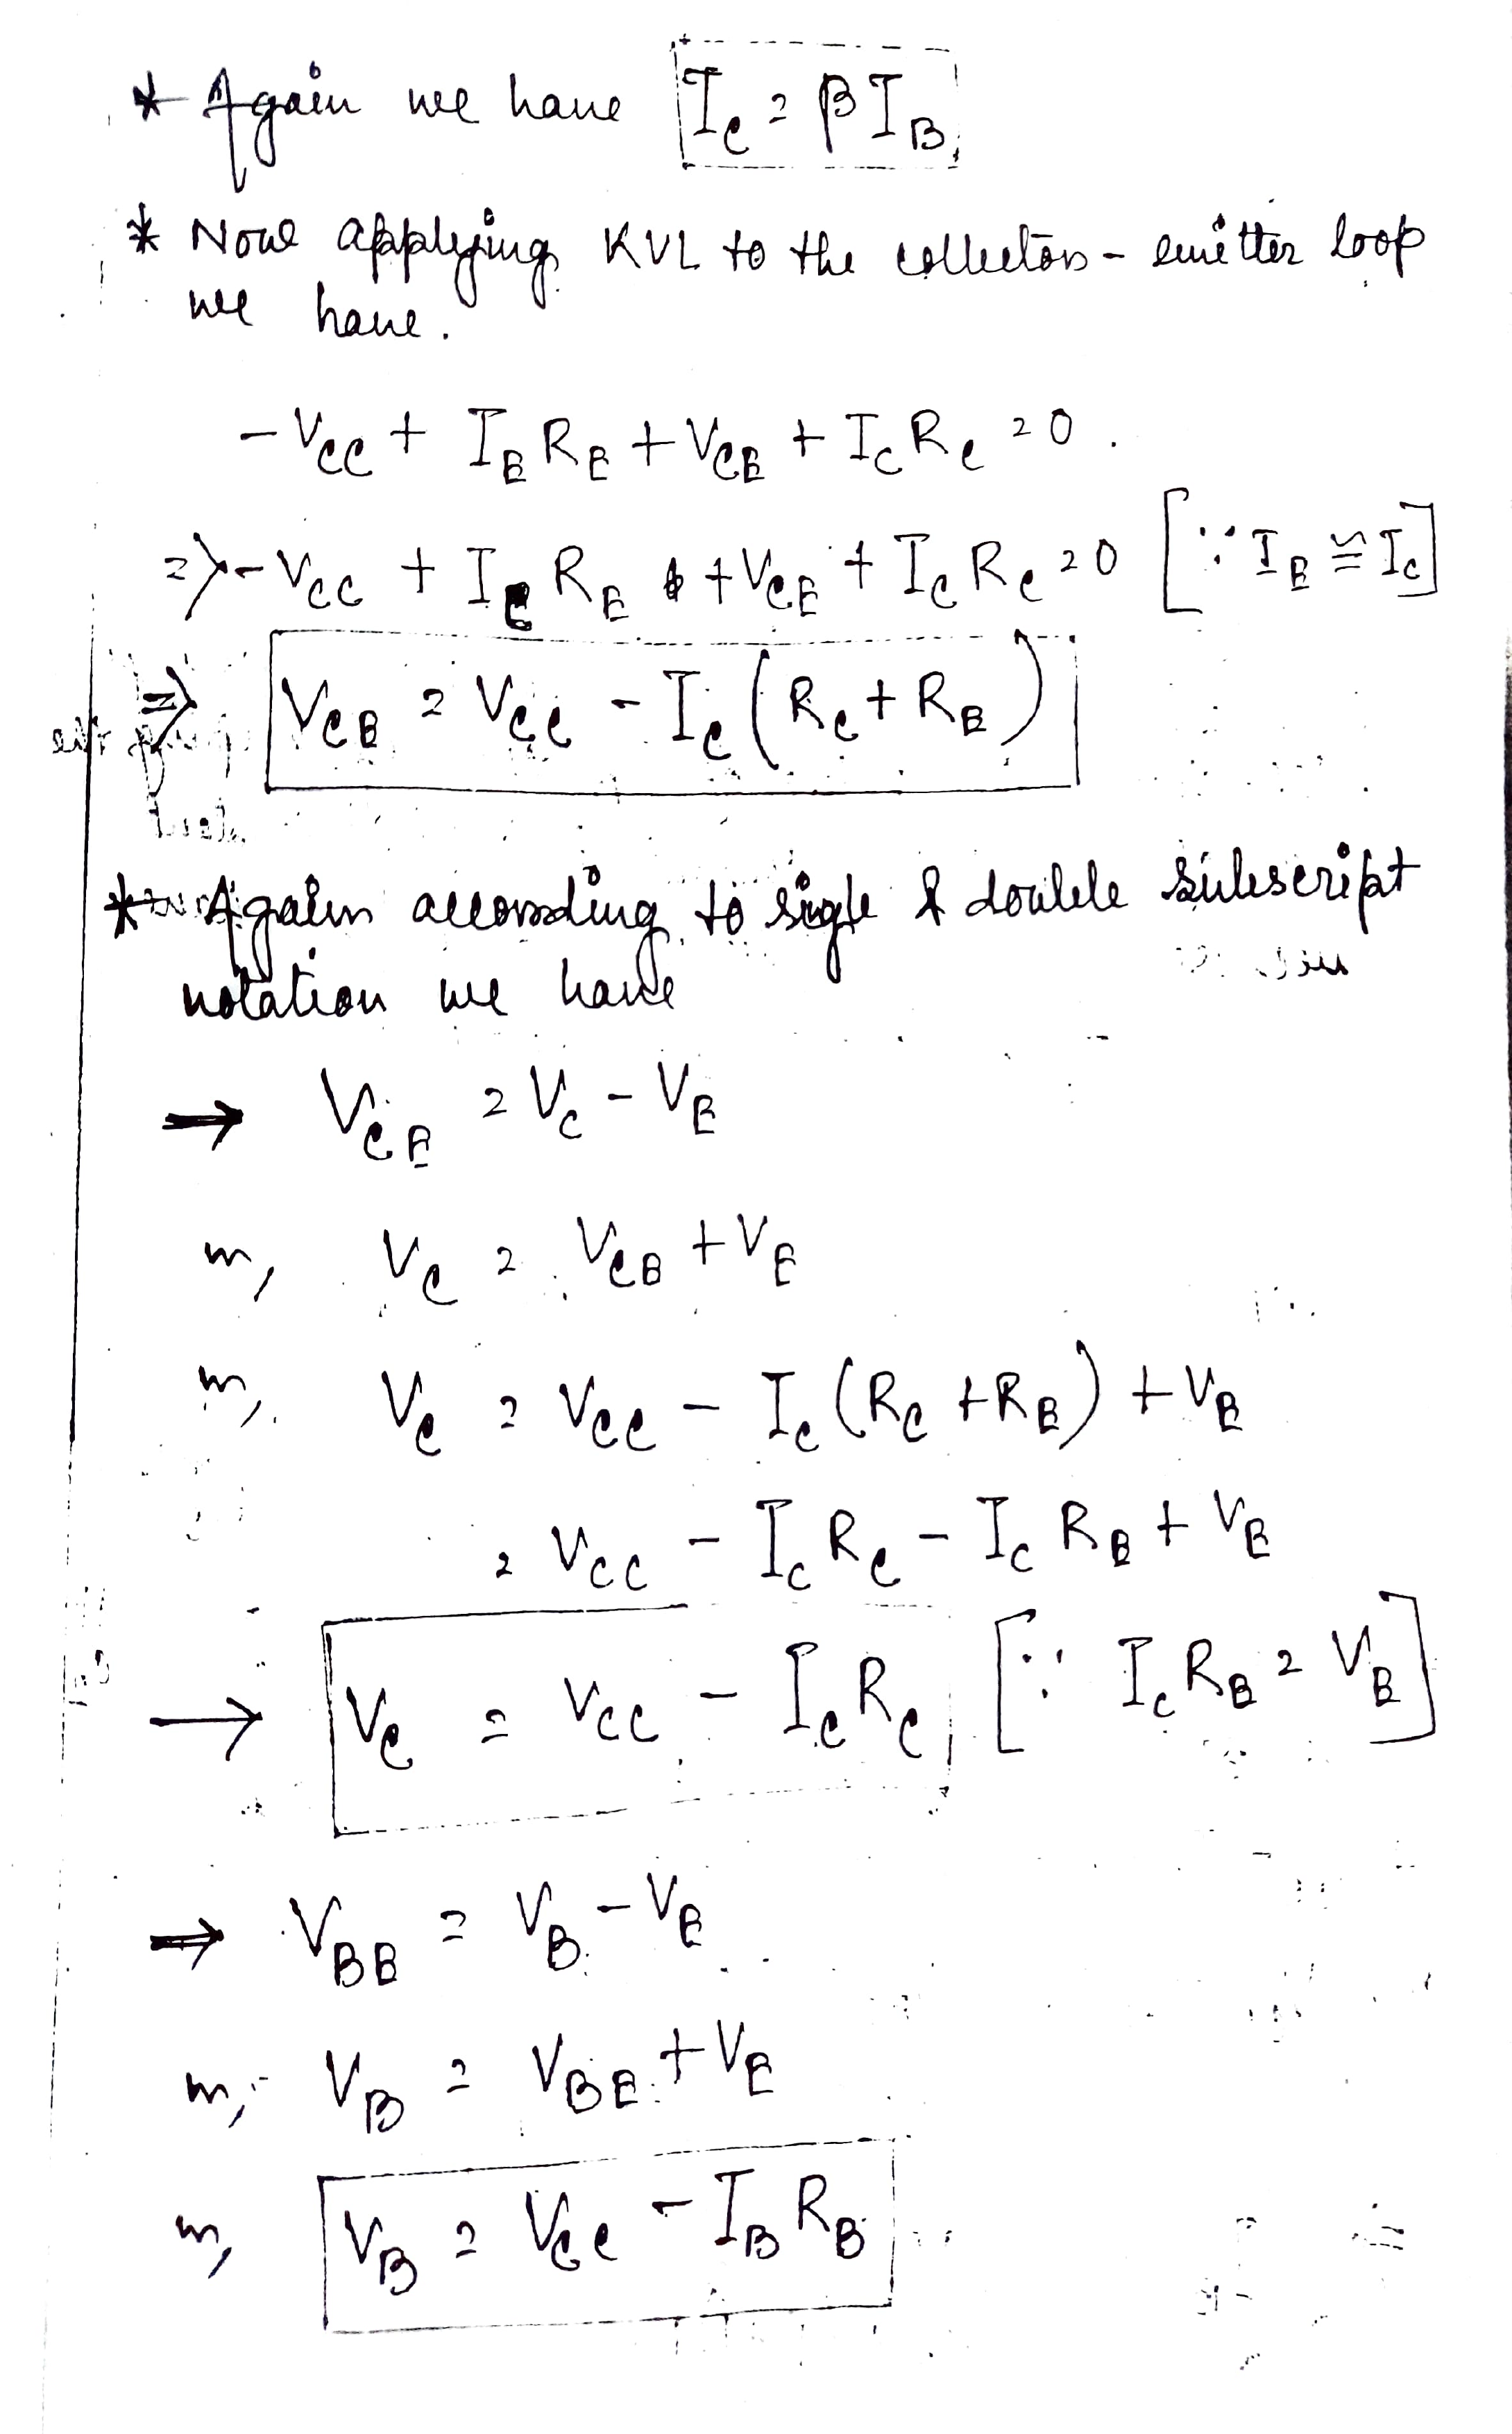 * Again we have I_C = β I_B
* Now applying KVL to the collector - emitter loop
we have.
- V_CC + I_E R_E + V_CE + I_C R_C = 0 .
=> - V_CC + I_C R_E + V_CE + I_C R_C = 0 [∵ I_E ≅ I_C]
=> V_CE = V_CC - I_C (R_C + R_E)
* Again according to sigle & double subscript
notation we have
→ V_CE = V_C - V_E
or, V_C = V_CE + V_E
or, V_C = V_CC - I_C (R_C + R_E) + V_E
= V_CC - I_C R_C - I_C R_E + V_E
→ V_C = V_CC - I_C R_C [∵ I_C R_E = V_E]
→ V_BE = V_B - V_E
or, V_B = V_BE + V_E
or, V_B = V_CC - I_B R_B